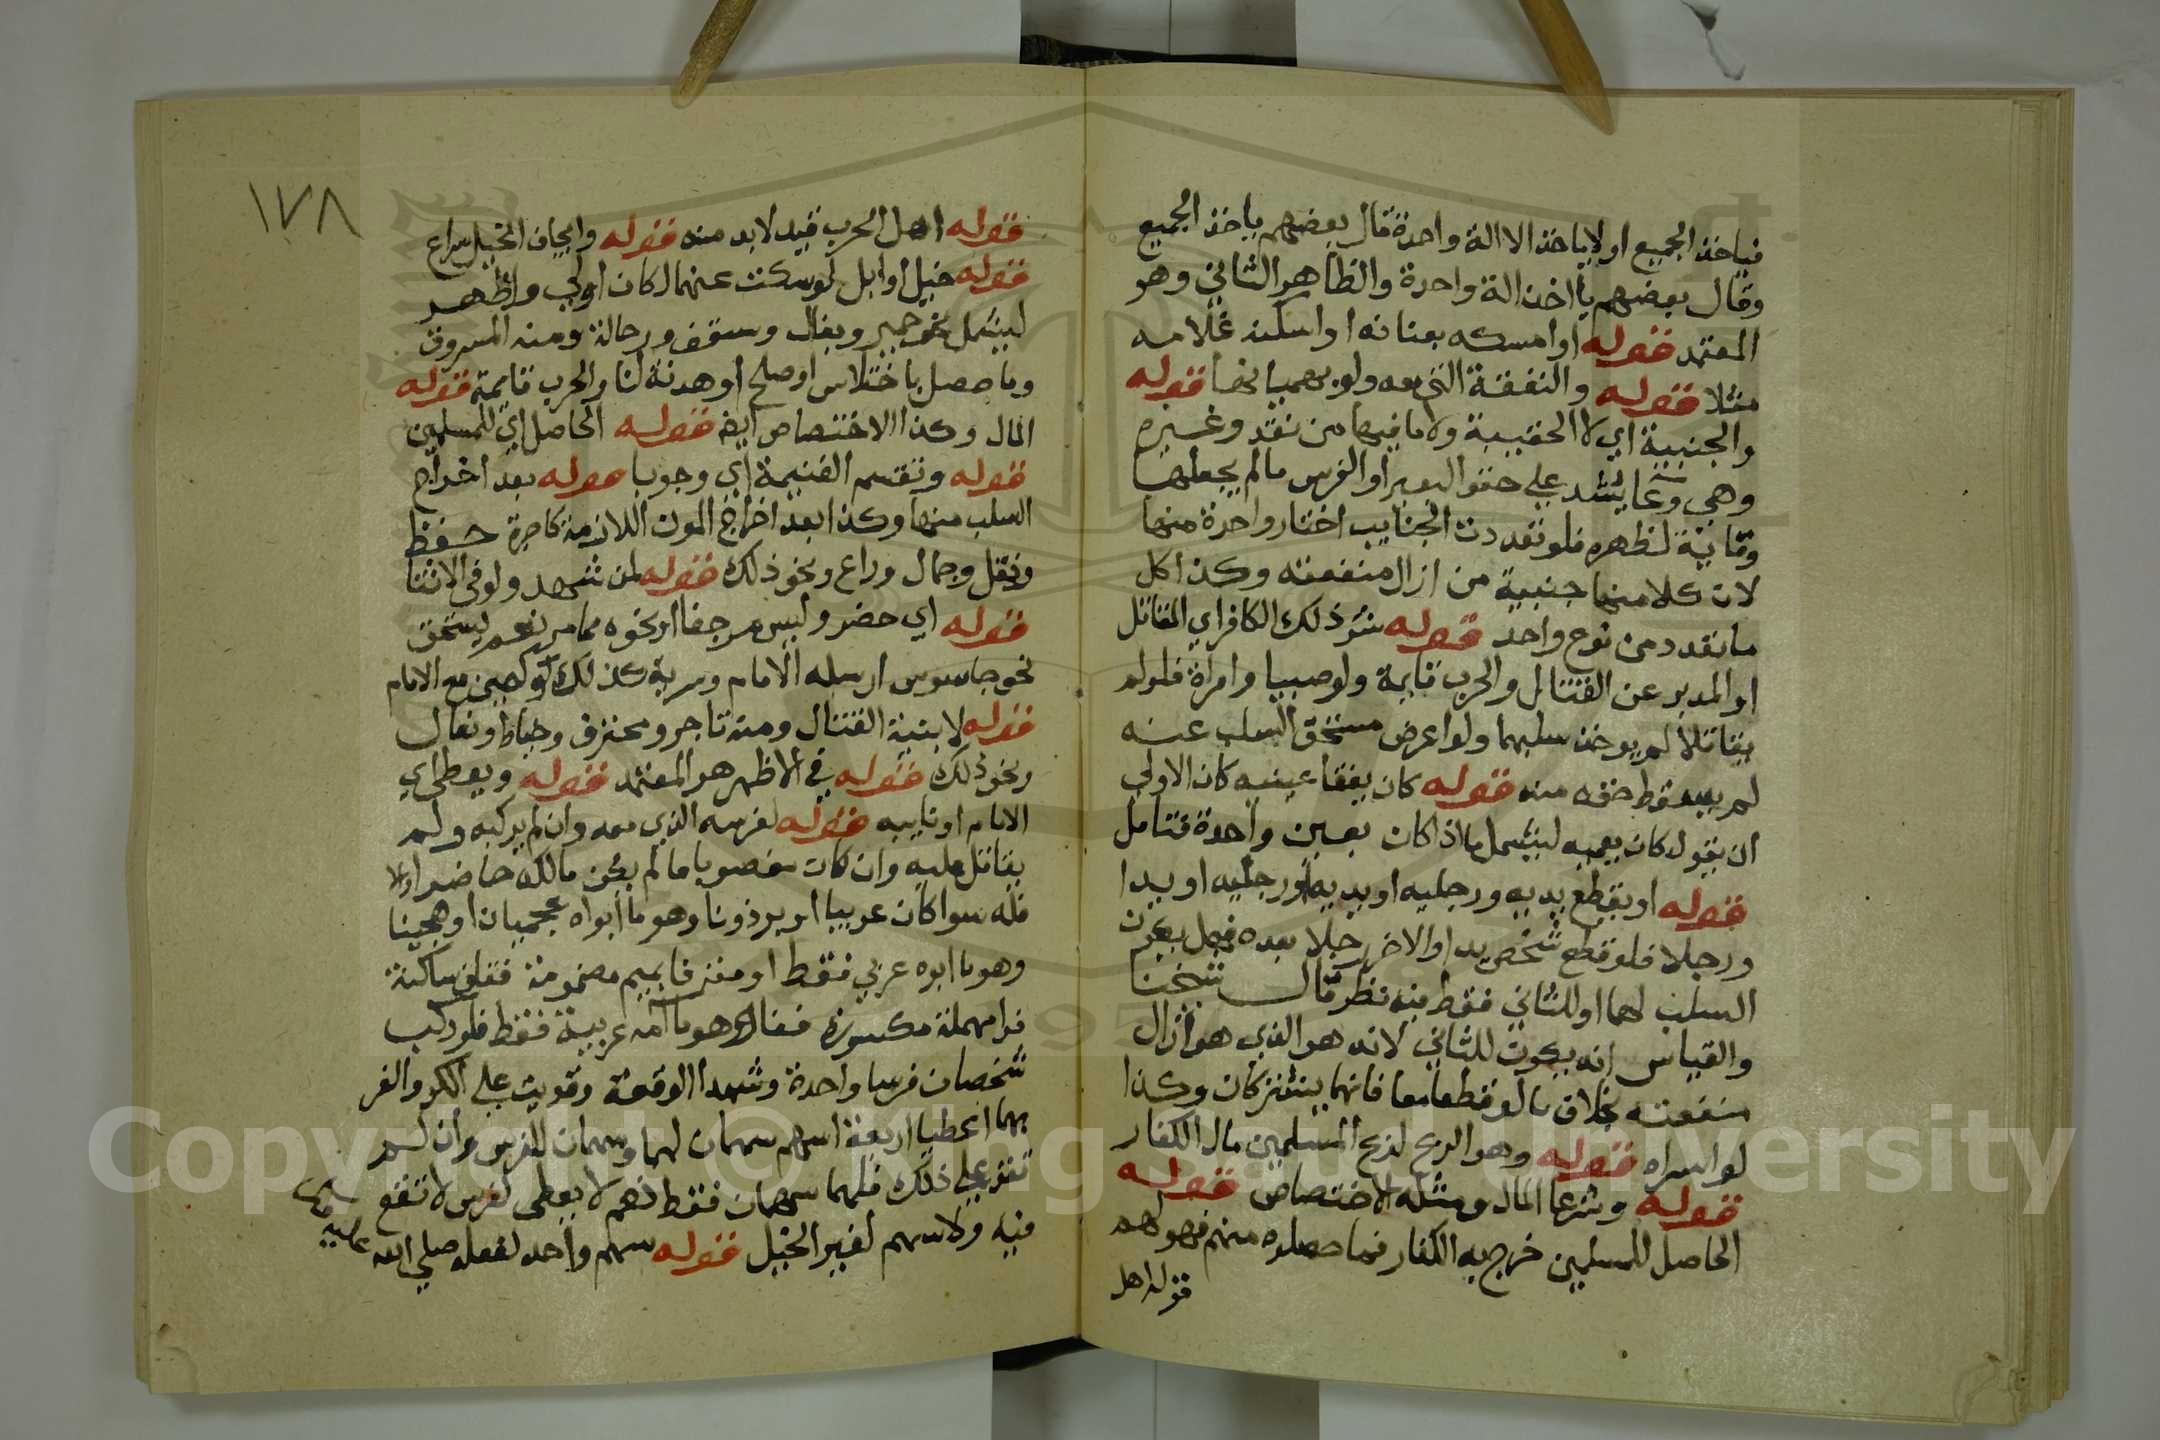 فياخذ الجميع او لا ياخذ الا الة واحدة قال بعضهم ياخذ الجميع
وقال بعضهم ياخذ الة واحدة والظاهر الثاني وهو
المعتمد قوله او امسكه بعنانه او امسكه غلامه
مثلا قوله والنفقة التي معه ولو بهميانها قوله
والجنيبة اي لا الحقيبة ولا ما فيها من نقد وغيره
وهي وعا يشد علي حقو البعير او الفرس ما لم يجعلها
وقاية لظهره فلو تعددت الجنايب اختار واحدة منها
لان كلا منها جنيبة من ازال منفعته وكذا كل
ما تعدد من نوع واحد قوله شر ذلك الكافر اي المقاتل
او المدبر عن القتال والحرب قايمة ولو صبيا وامراة فلو لم
يقاتلا لم يوخذ سلبهما ولو اعرض مستحق السلب عنه
لم يسقط حقه منه قوله كان يفقا عينيه كان الاولي
ان يقول كان يعميه ليشمل ما اذا كان بعين واحدة فتامل
قوله او يقطع يديه ورجليه او يديه او رجليه او يدا
ورجلا فلو قطع شخص يدا والاخر رجلا بعده فهل يكون
السلب لهما او للثاني فقط فيه نظر قال شيخنا
والقياس انه يكون للثاني لانه هو الذي هو ازال
منفعته بخلاف ما لو قطعا معا فانهما يشتركان وكذا
لو اسراه قوله وهو الربح لربح المسلمين مال الكفار
قوله وشرعا المال ومثله الاختصاص قوله
الحاصل للمسلمين خرج به الكفار فما حصلوه منهم فهو لهم
قوله اهل
١٧٨
قوله اهل الحرب قيد لابد منه قوله وايجاف الخيل اسراع
قوله خيل او ابل لو سكت عنهما لكان اولي واظهر
ليشمل نحو حمير وبغال وسقف ورجالة ومنه المسروق
وما حصل باختلاس او صلح او هدنة لنا والحرب قايمة قوله
المال وكذا الاختصاص ايضا قوله الحاصل اي للمسلمين
قوله وتقسم الغنيمة اي وجوبا قوله بعد اخراج
السلب منها وكذا بعد اخراج المون اللازمة كاجرة حفظ
ونقل وجمال وراع ونحو ذلك قوله لمن شهد ولو في الاثنا
قوله اي حضر وليس مرجفا او نحوه مما مر نعم يستحق
نحو جاسوس ارسله الامام وسرية كذلك وكمين مع الامام
قوله لا بنية القتال ومنه تاجر ومحترف وخياط وبقال
ونحو ذلك قوله في الاظهر هو المعتمد قوله ويعطي اي
الامام او نايبه قوله لفرسه الذي معه وان لم يركبه ولم
يقاتل عليه وان كان مغصوبا ما لم يكن مالكه حاضرا والا
فله سوا كان عربيا او برذونا وهو ما ابواه عجميان او هجينا
وهو ما ابوه عربي فقط او مقرفا بميم مضمومة فقاف ساكنة
فرا مهملة مكسورة ففاء وهو ما امه عربية فقط فلو ركب
شخصان فرسا واحدة وشهدا الوقعة وقويت علي الكر والفر
بهما اعطيا اربعة اسهم سهمان لهما وسهمان للفرس وان لم
تقو علي ذلك فلهما سهمان فقط نعم لا يعطي لفرس لا نفع
فيه ولا سهم لغير الخيل قوله سهم واحد لفعله صلي الله
عليه
Copyright © King Saud University